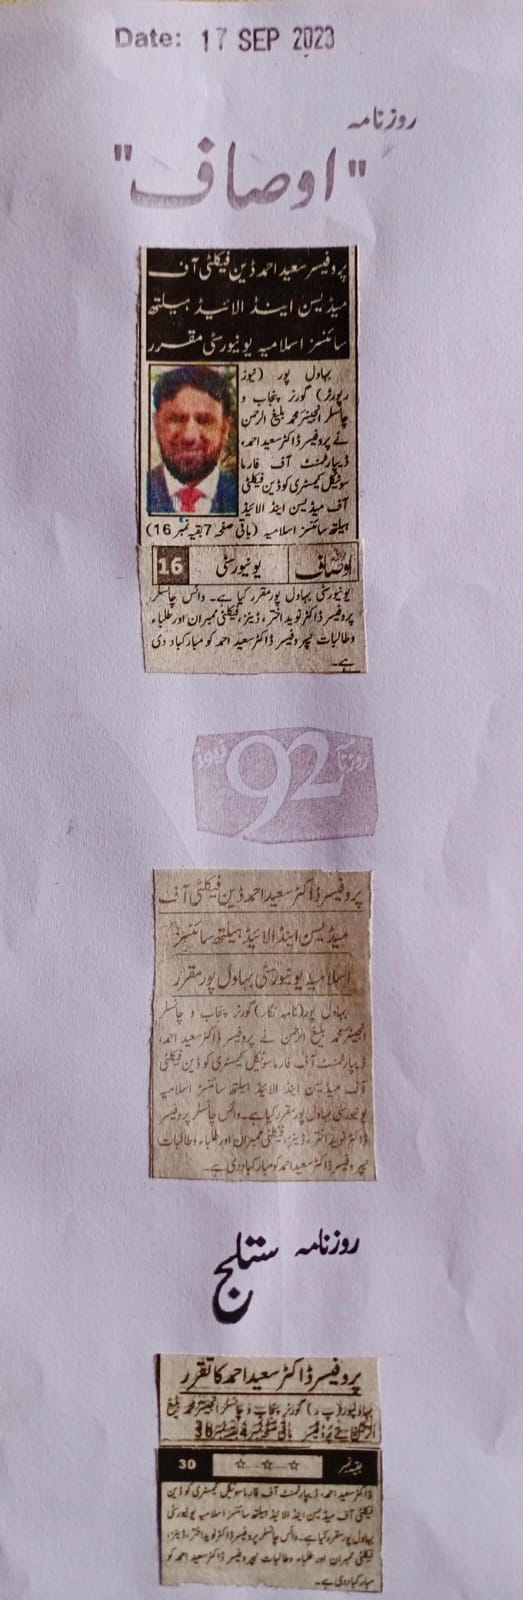 Date: 17 SEP 2023
روزنامہ
"اوصاف"
پروفیسر سعید احمد ڈین فیکلٹی آف
میڈیسن اینڈ الائیڈ ہیلتھ
سائنسز اسلامیہ یونیورسٹی مقرر
بہاول پور (نیوز
رپورٹر) گورنر پنجاب و
چانسلر انجینئر محمد بلیغ الرحمن
نے پروفیسر ڈاکٹر سعید احمد،
ڈیپارٹمنٹ آف فارما
سوٹیکل کیمسٹری کو ڈین فیکلٹی
آف میڈیسن اینڈ الائیڈ
ہیلتھ سائنسز اسلامیہ (باقی صفحہ 7 بقیہ نمبر 16)
اوصاف یونیورسٹی 16
یونیورسٹی بہاول پور مقرر کیا ہے۔ وائس چانسلر
پروفیسر ڈاکٹر نوید اختر، ڈینز، فیکلٹی ممبران اور طلباء
وطالبات نے پروفیسر ڈاکٹر سعید احمد کو مبارکباد دی
ہے۔
روزنامہ 92 نیوز
پروفیسر ڈاکٹر سعید احمد ڈین فیکلٹی آف
میڈیسن اینڈ الائیڈ ہیلتھ سائنسز
اسلامیہ یونیورسٹی بہاول پور مقرر
بہاول پور (نامہ نگار) گورنر پنجاب و چانسلر
انجینئر محمد بلیغ الرحمن نے پروفیسر ڈاکٹر سعید احمد،
ڈیپارٹمنٹ آف فارماسوٹیکل کیمسٹری کو ڈین فیکلٹی
آف میڈیسن اینڈ الائیڈ ہیلتھ سائنسز اسلامیہ
یونیورسٹی بہاول پور مقرر کیا ہے۔ وائس چانسلر پروفیسر
ڈاکٹر نوید اختر، ڈینز، فیکلٹی ممبران اور طلباء وطالبات
نے پروفیسر ڈاکٹر سعید احمد کو مبارکباد دی ہے۔
روزنامہ ستلج
پروفیسر ڈاکٹر سعید احمد کا تقرر
بہاولپور (پ ر) گورنر پنجاب و چانسلر انجینئر محمد بلیغ
الرحمن نے پروفیسر باقی صفحہ نمبر 4 بقیہ نمبر
بقیہ نمبر ☆ ☆ ☆ 30
ڈاکٹر سعید احمد، ڈیپارٹمنٹ آف فارماسوٹیکل کیمسٹری کو ڈین
فیکلٹی آف میڈیسن اینڈ الائیڈ ہیلتھ سائنسز اسلامیہ یونیورسٹی
بہاول پور مقرر کیا ہے۔ وائس چانسلر پروفیسر ڈاکٹر نوید اختر، ڈینز،
فیکلٹی ممبران اور طلباء وطالبات نے پروفیسر ڈاکٹر سعید احمد کو
مبارکباد دی ہے۔